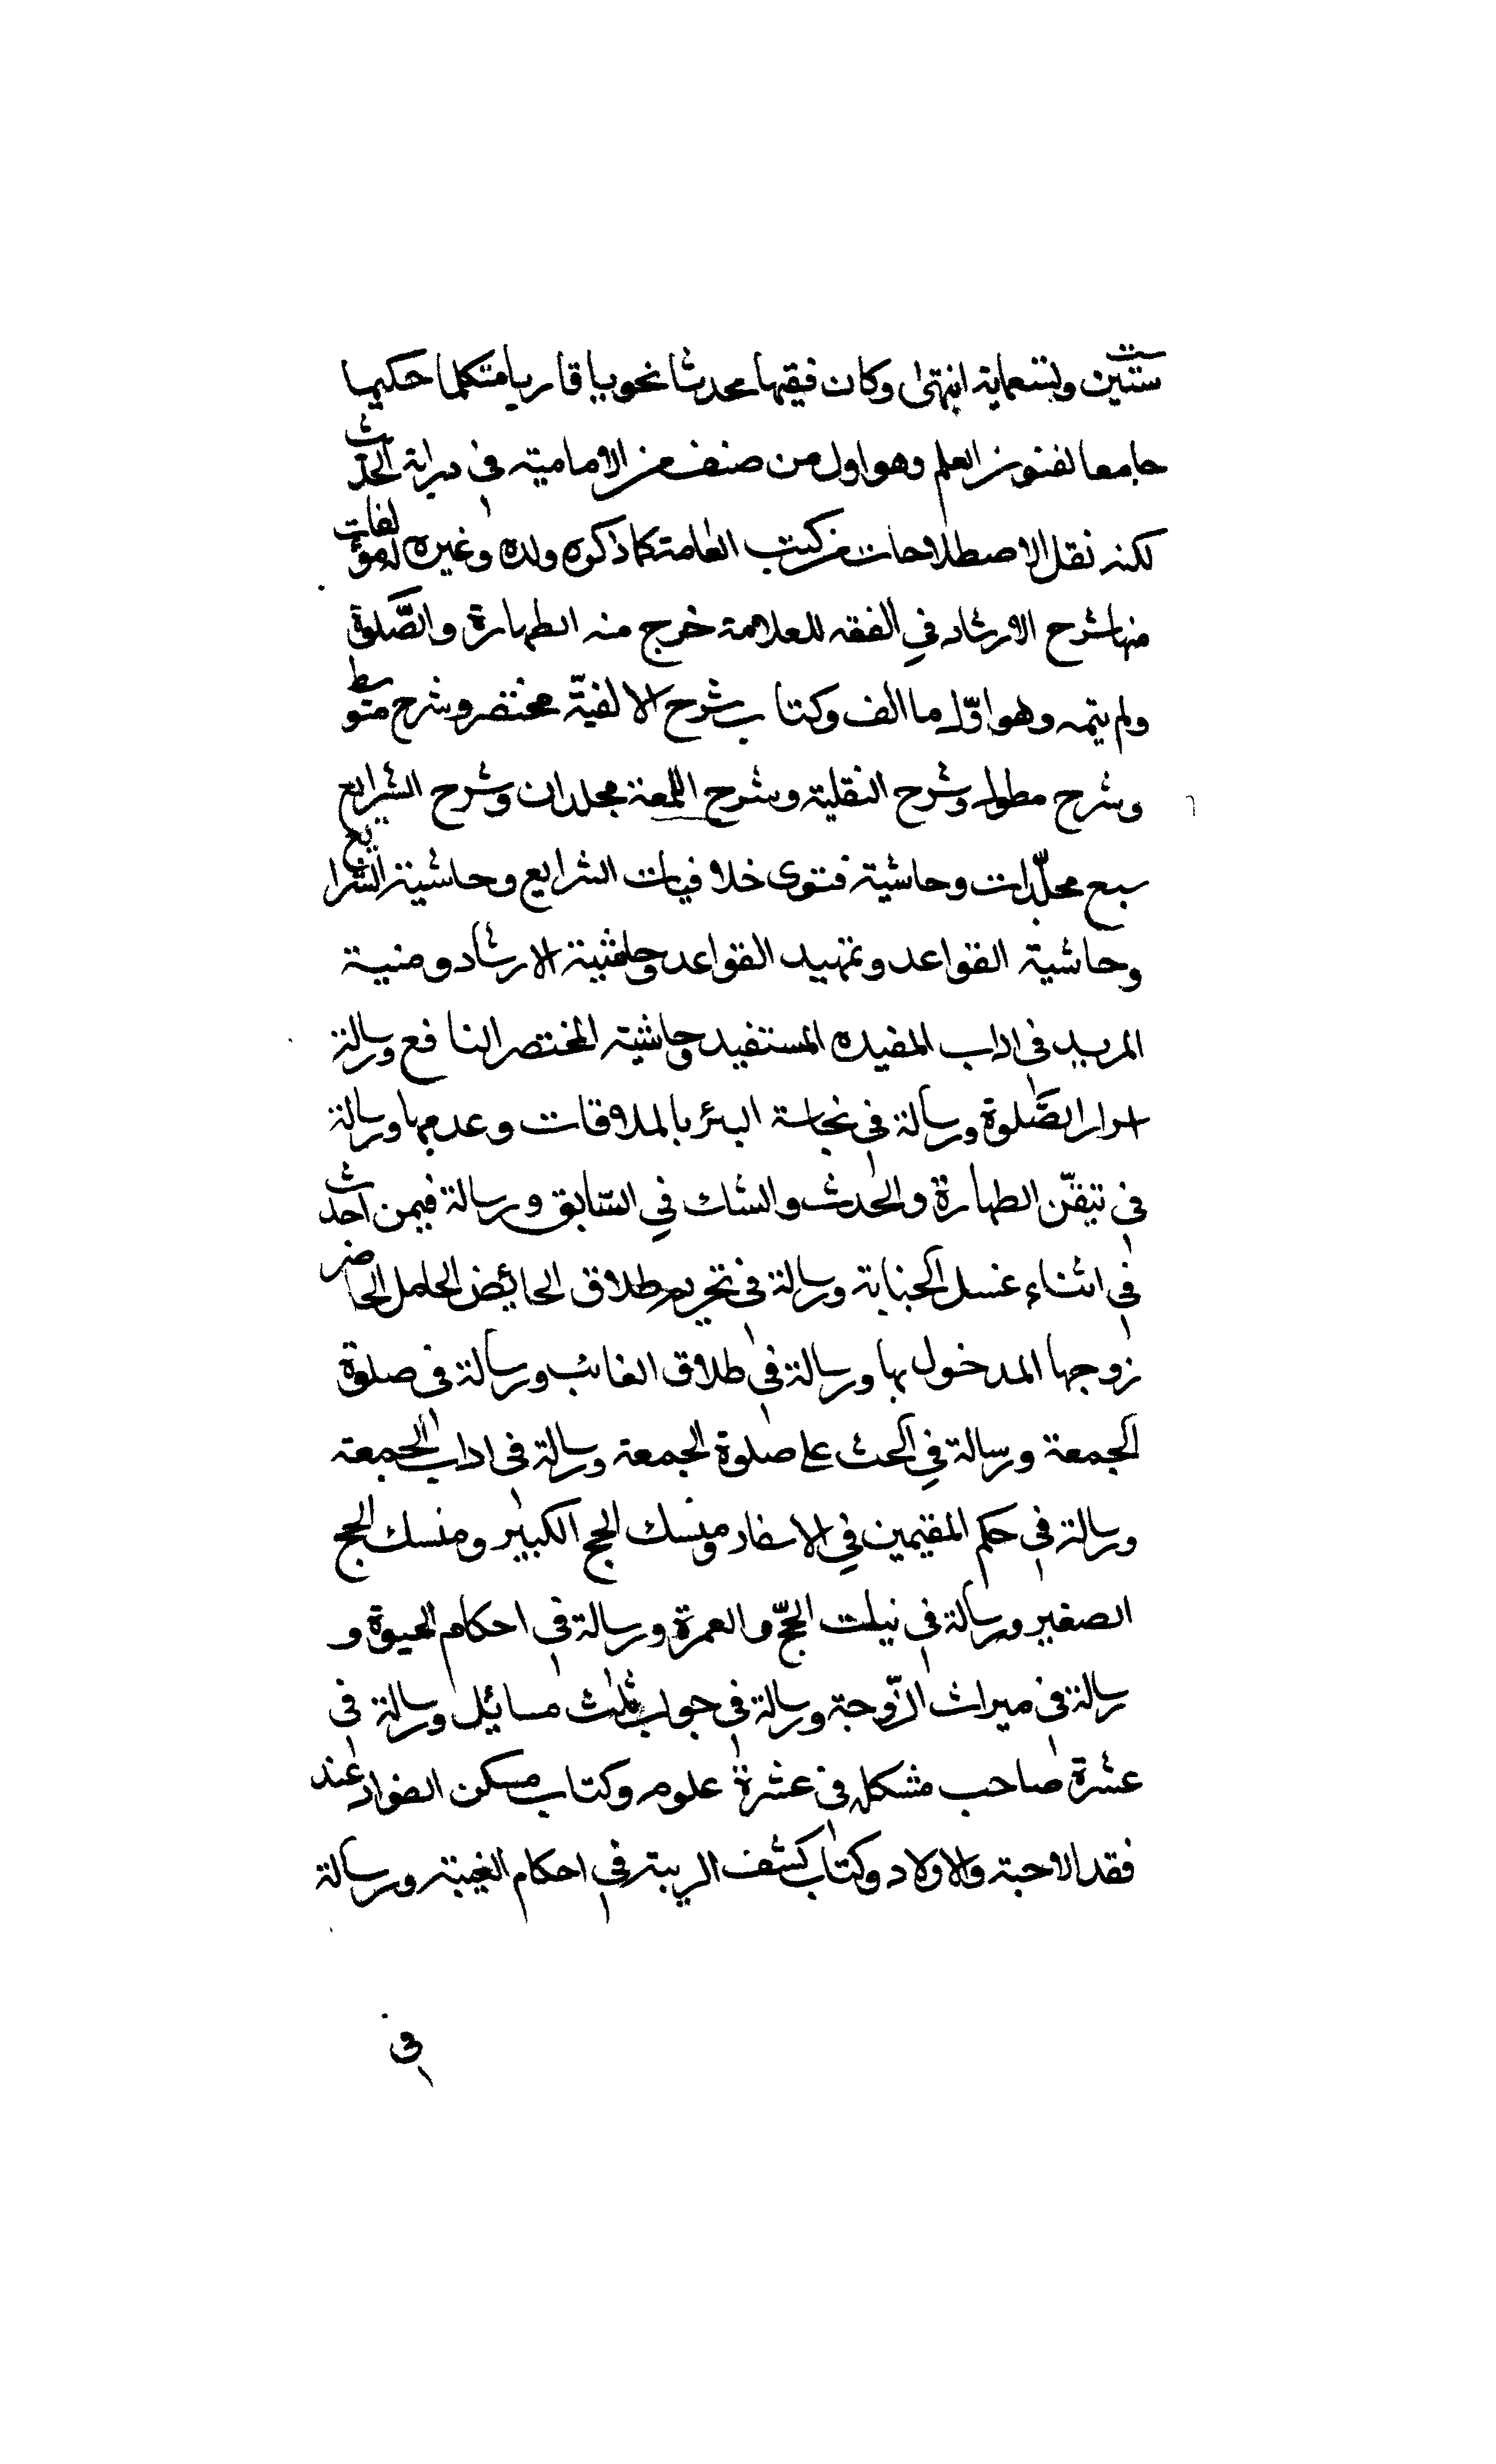 ست
ستين وتسعماية انتهى وكان فقيها محدثا نحويا قاريا متكلما حكيما
جامعا لفنون العلم وهو اول من صنف من الامامية في دراية الحديث
لكنه نقل الاصطلاحات من كتب العامة كما ذكره ولده وغيره له مؤلفات
منها شرح الارشاد في الفقه للعلامة خرج منه الطهارة والصَّلوة
ولم يتمه وهو اوّل ما الف وكتاب شرح الالفيّة مختصر وشرح متوسط
وشرح مطول وشرح النفلية وشرح اللمعة مجلدان وشرح الشرايع
سبع مجلّدات وحاشية فتوى خلافيات الشرايع وحاشية الشرايع
وحاشية القواعد وتمهيد القواعد وحاشية الارشاد ومنية
المريد في اداب المفيد والمستفيد وحاشية المختصر النافع ورسالة
اسرار الصَّلوة ورسالة في نجاسة البئر بالملاقات وعدمها ورسالة
في تيقّن الطهارة والحدث والشك في السّابق ورسالة فيمن احدث
في اثناء غسل الجنابة ورسالة في تحريم طلاق الحائض الحامل الحاضر
زوجها المدخول بها ورسالة في طلاق الغائب ورسالة في صلوة
الجمعة ورسالة في الحث على صلوة الجمعة ورسالة في اداب الجمعة
ورسالة في حكم المقيمين في الاسفار ومنسك الحج الكبير ومنسك الحج
الصغير ورسالة في نيات الحجّ والعمرة ورسالة في احكام الحبوة و
رسالة في ميراث الزّوجة ورسالة في جواب ثلث مسائل ورسالة في
عشرة مباحث مشكلة في عشرة علوم وكتاب مسكن الفواد عند
فقد الاحبة والاولاد وكتاب كشف الريبة في احكام الغيبة ورسالة
في